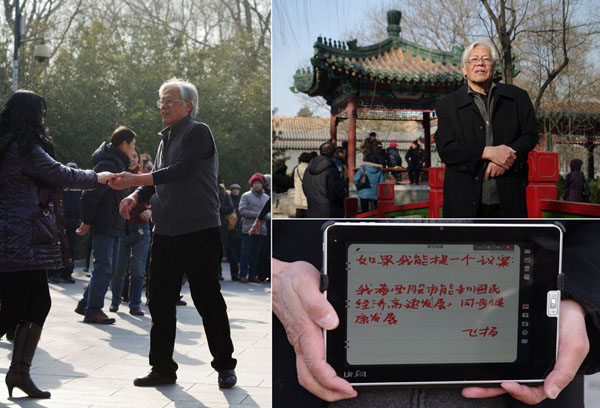 如果我能提一个议案:
我希望股市能和国民
经济高速发展，同步健
康发展
飞扬